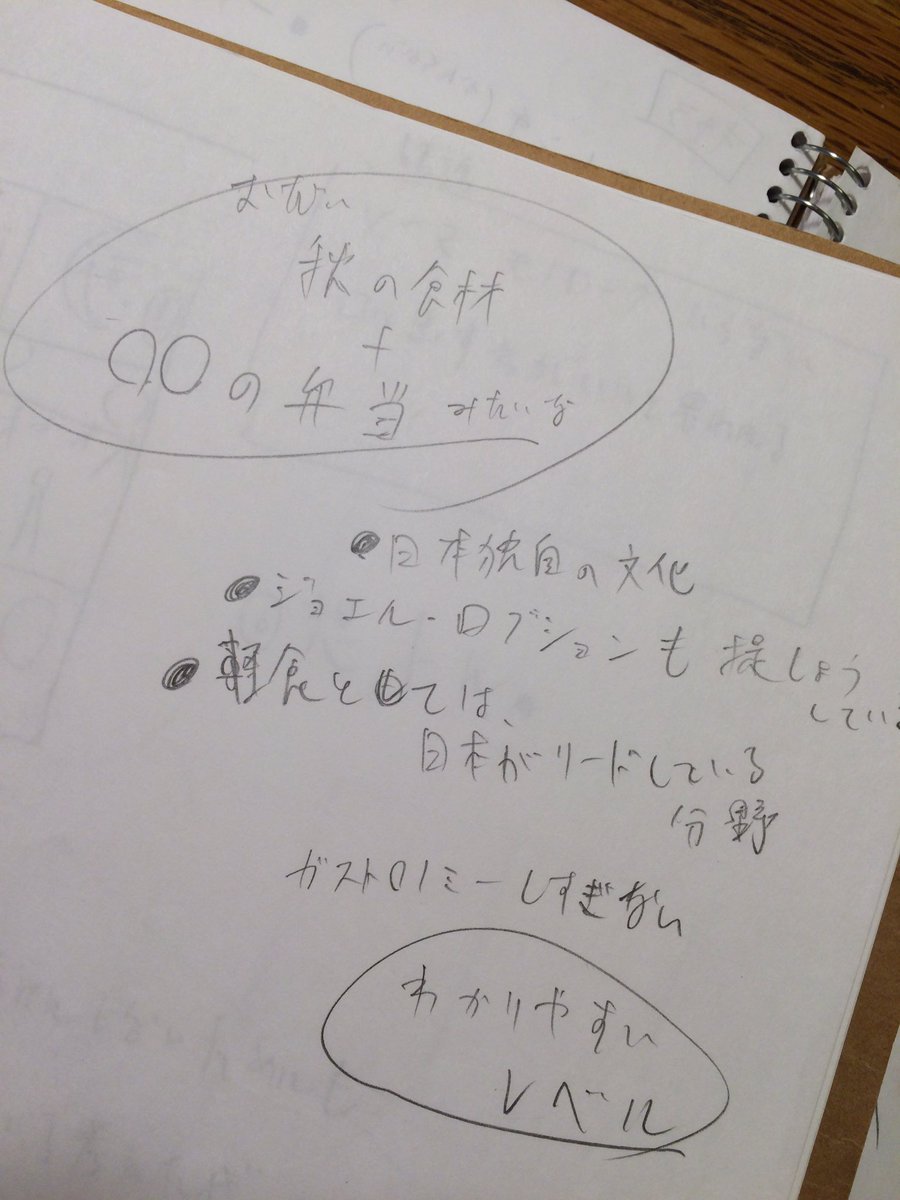 秋の食材
+
〇〇の弁当 みたいな
●日本独自の文化
●ジョエル・ロブションも提しょう
している
●軽食としては、
日本がリードしている
分野
ガストロノミーしすぎない
わかりやすい
レベル